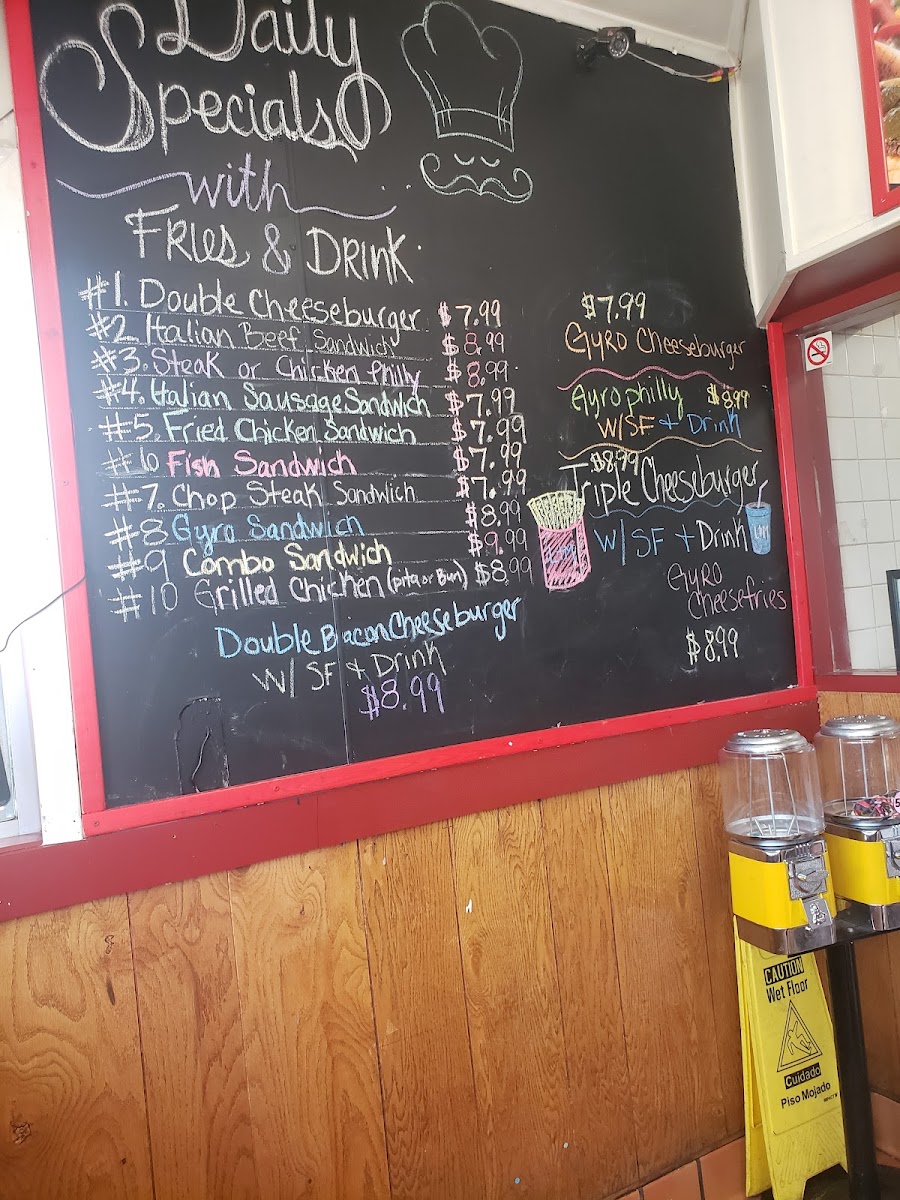 Daily
Specials
with
Fries & Drink
#1. Double Cheeseburger $7.99
#2. Italian Beef Sandwich $8.99
#3. Steak or Chicken Philly $8.99
#4. Italian Sausage Sandwich $7.99
#5. Fried Chicken Sandwich $7.99
#6 Fish Sandwich $7.99
#7. Chop Steak Sandwich $7.99
#8 Gyro Sandwich $8.99
#9 Combo Sandwich $9.99
#10 Grilled Chicken (pita or Bun) $8.99
Double Bacon Cheeseburger
W/ SF + Drink
$8.99
$7.99
Gyro Cheeseburger
Gyro philly $8.99
W/SF + Drink
$8.99
Triple Cheeseburger
W/ SF + Drink
Gyro
Cheesefries
$8.99
CAUTION
Wet Floor
Cuidado
Piso Mojado